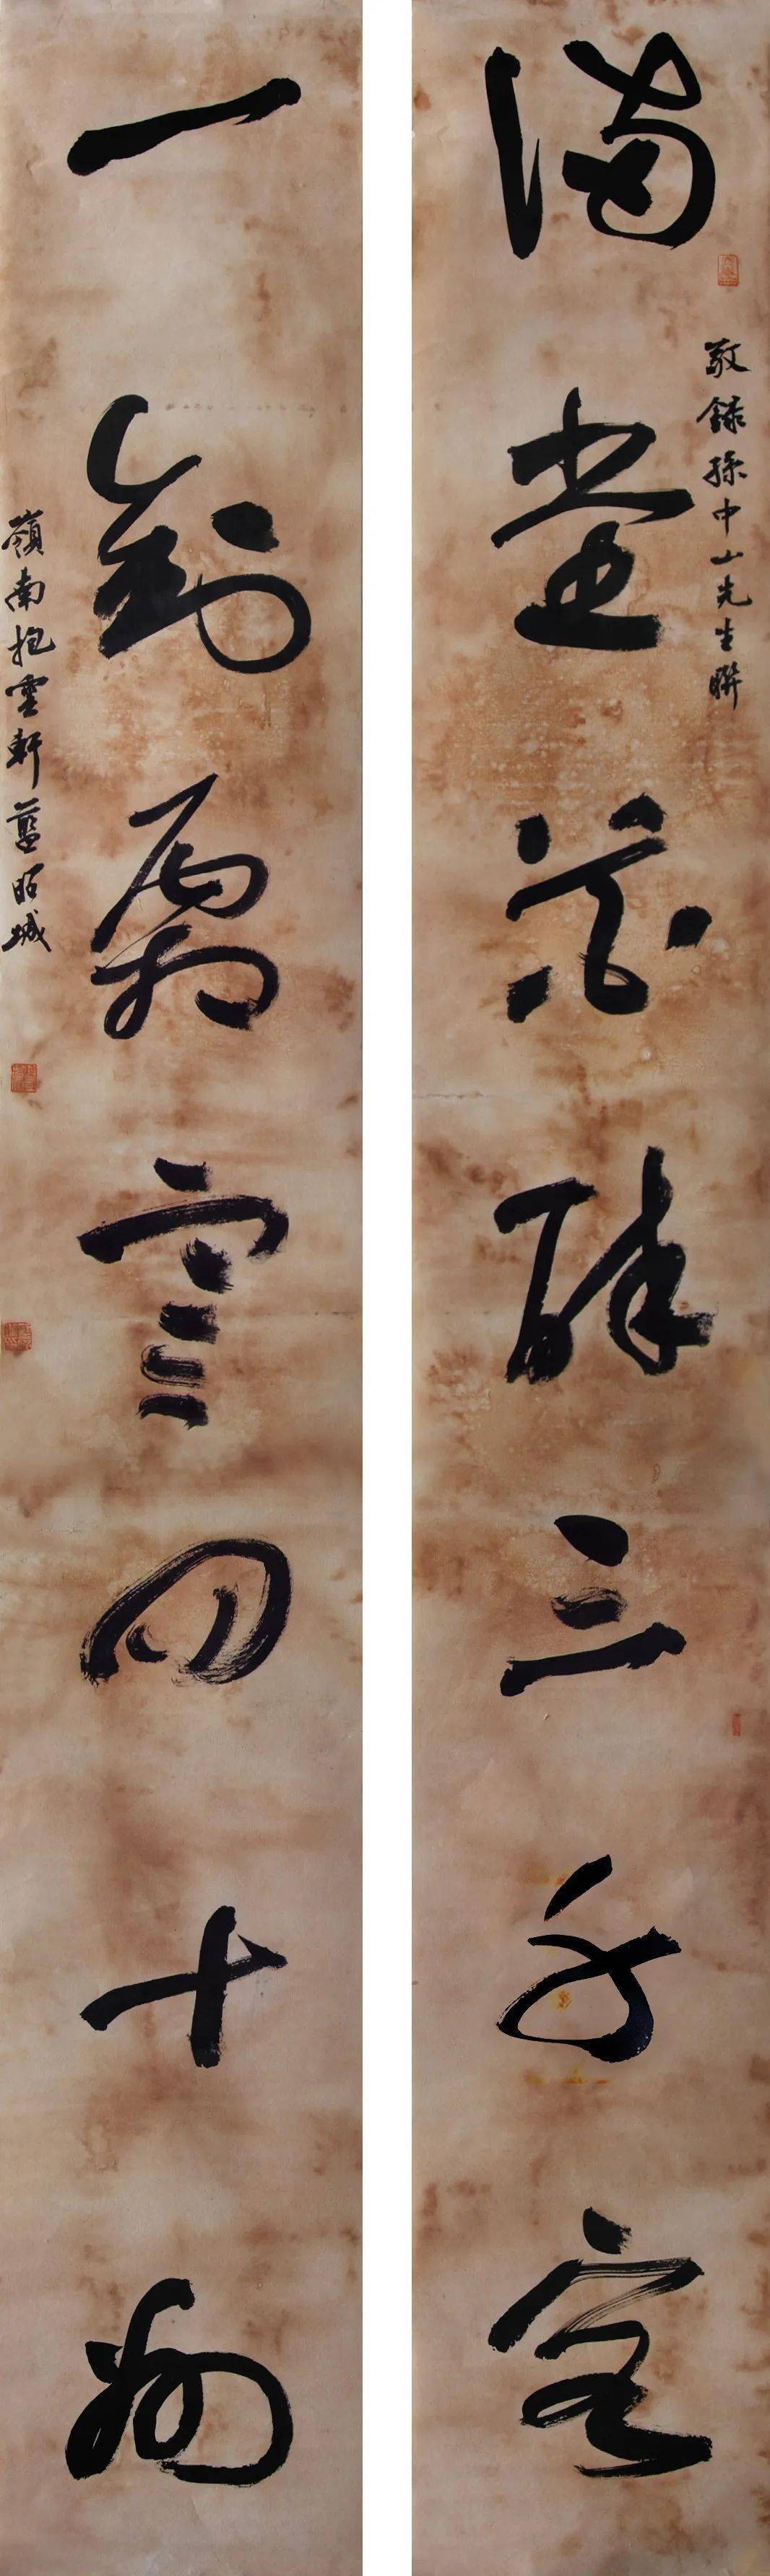 滿堂花醉三千客
敬錄孫中山先生聯
一劍霜寒四十州
嶺南抱雲軒藍昭城